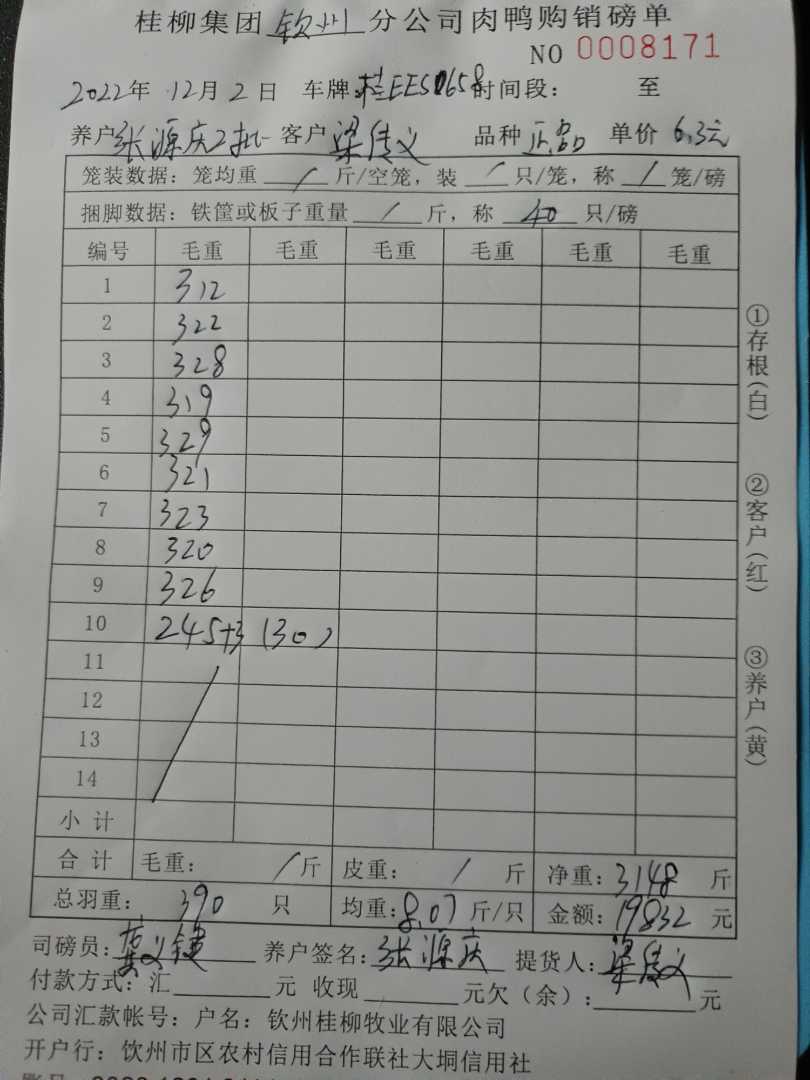 桂柳集团 钦州 分公司肉鸭购销磅单
NO 0008171
2022年 12月 2日 车牌:桂EES0658 时间段: 至
养户 张源庆2批 客户 梁传义 品种 正品 单价 6.3元
笼装数据: 笼均重 / 斤/空笼, 装 / 只/笼, 称 / 笼/磅
捆脚数据: 铁筐或板子重量 / 斤, 称 40 只/磅
编号 毛重 毛重 毛重 毛重 毛重 毛重
1 312
2 322
3 328
4 319
5 329
6 321
7 323
8 320
9 326
10 245+3 (30)
11
12
13
14
小计
合计 毛重: / 斤 皮重: / 斤 净重: 3148 斤
总羽重: 390 只 均重: 8.07 斤/只 金额: 19832 元
司磅员: 义键 养户签名: 张源庆 提货人: 梁传义
付款方式: 汇 元 收现 元欠(余): 元
公司汇款帐号: 户名: 钦州桂柳牧业有限公司
开户行: 钦州市区农村信用合作联社大垌信用社
①存根(白)
②客户(红)
③养户(黄)